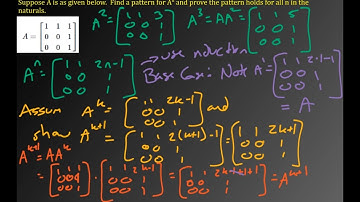 Suppose A is as given below. Find a pattern for Aⁿ and prove the pattern holds for all n in the
naturals.
A = [1 1 1; 0 0 1; 0 0 1]
A² = [1 1 3; 0 0 1; 0 0 1] A³ = AA² = [1 1 5; 0 0 1; 0 0 1]
Aⁿ = [1 1 2n-1; 0 0 1; 0 0 1] → use induction
Base Case: Not A¹ = [1 1 2·1-1; 0 0 1; 0 0 1] = A
Assum Aᵏ = [1 1 2k-1; 0 0 1; 0 0 1] and
show Aᵏ⁺¹ = [1 1 2(k+1)-1; 0 0 1; 0 0 1] = [1 1 2k+1; 0 0 1; 0 0 1]
Aᵏ⁺¹ = AAᵏ
= [1 1 1; 0 0 1; 0 0 1] · [1 1 2k-1; 0 0 1; 0 0 1] = [1 1 2k-1+1+1; 0 0 1; 0 0 1] = Aᵏ⁺¹